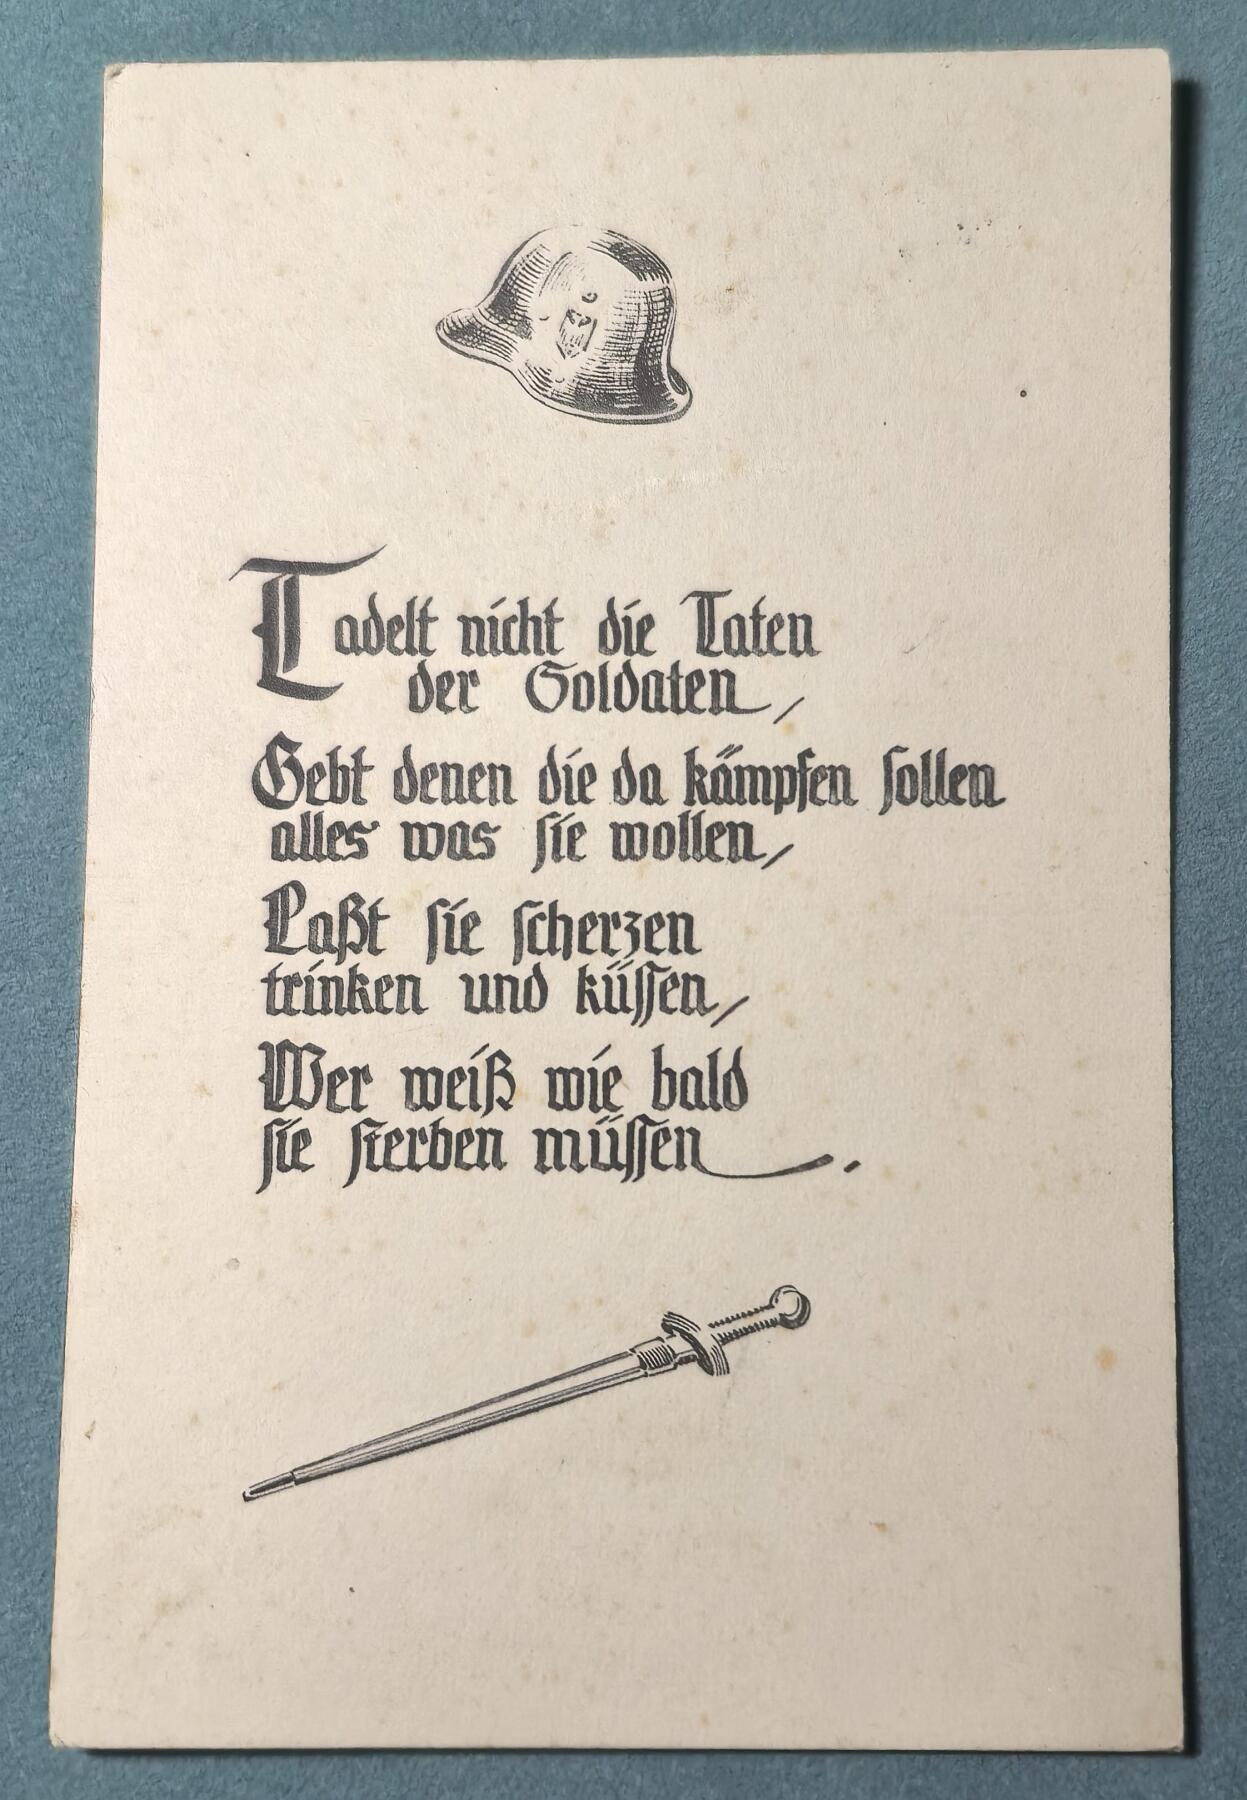 Tadelt nicht die Taten
der Soldaten,
Gebt denen die da kämpfen sollen
alles was sie wollen,
Laßt sie scherzen
trinken und küssen,
Wer weiß wie bald
sie sterben müssen.